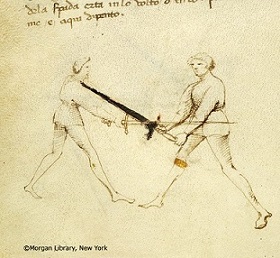 dela spada erta in lo volto o in lo p
me e aqui dipento.
©Morgan Library, New York